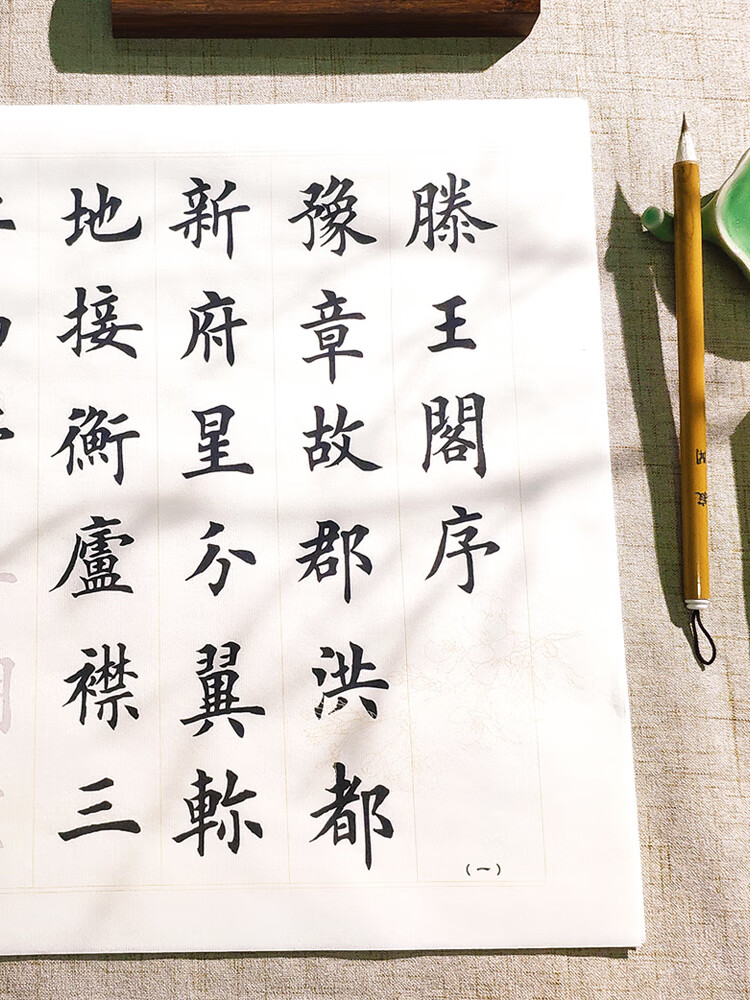 滕王閣序
（一）
豫章故郡洪都
新府星分翼軫
地接衡廬襟三